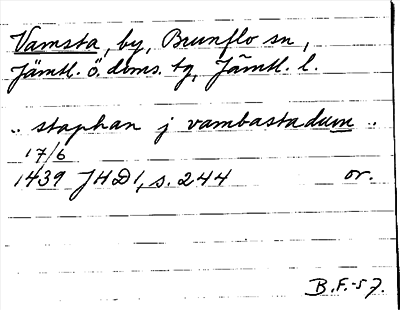 Vamsta, by, Brunflo sn,
Jämtl. ö. doms. tg, Jämtl. l.
.. staphan j vambastadum ..
17/6
1439 JHD 1, s. 244 or.
B.F.-57.